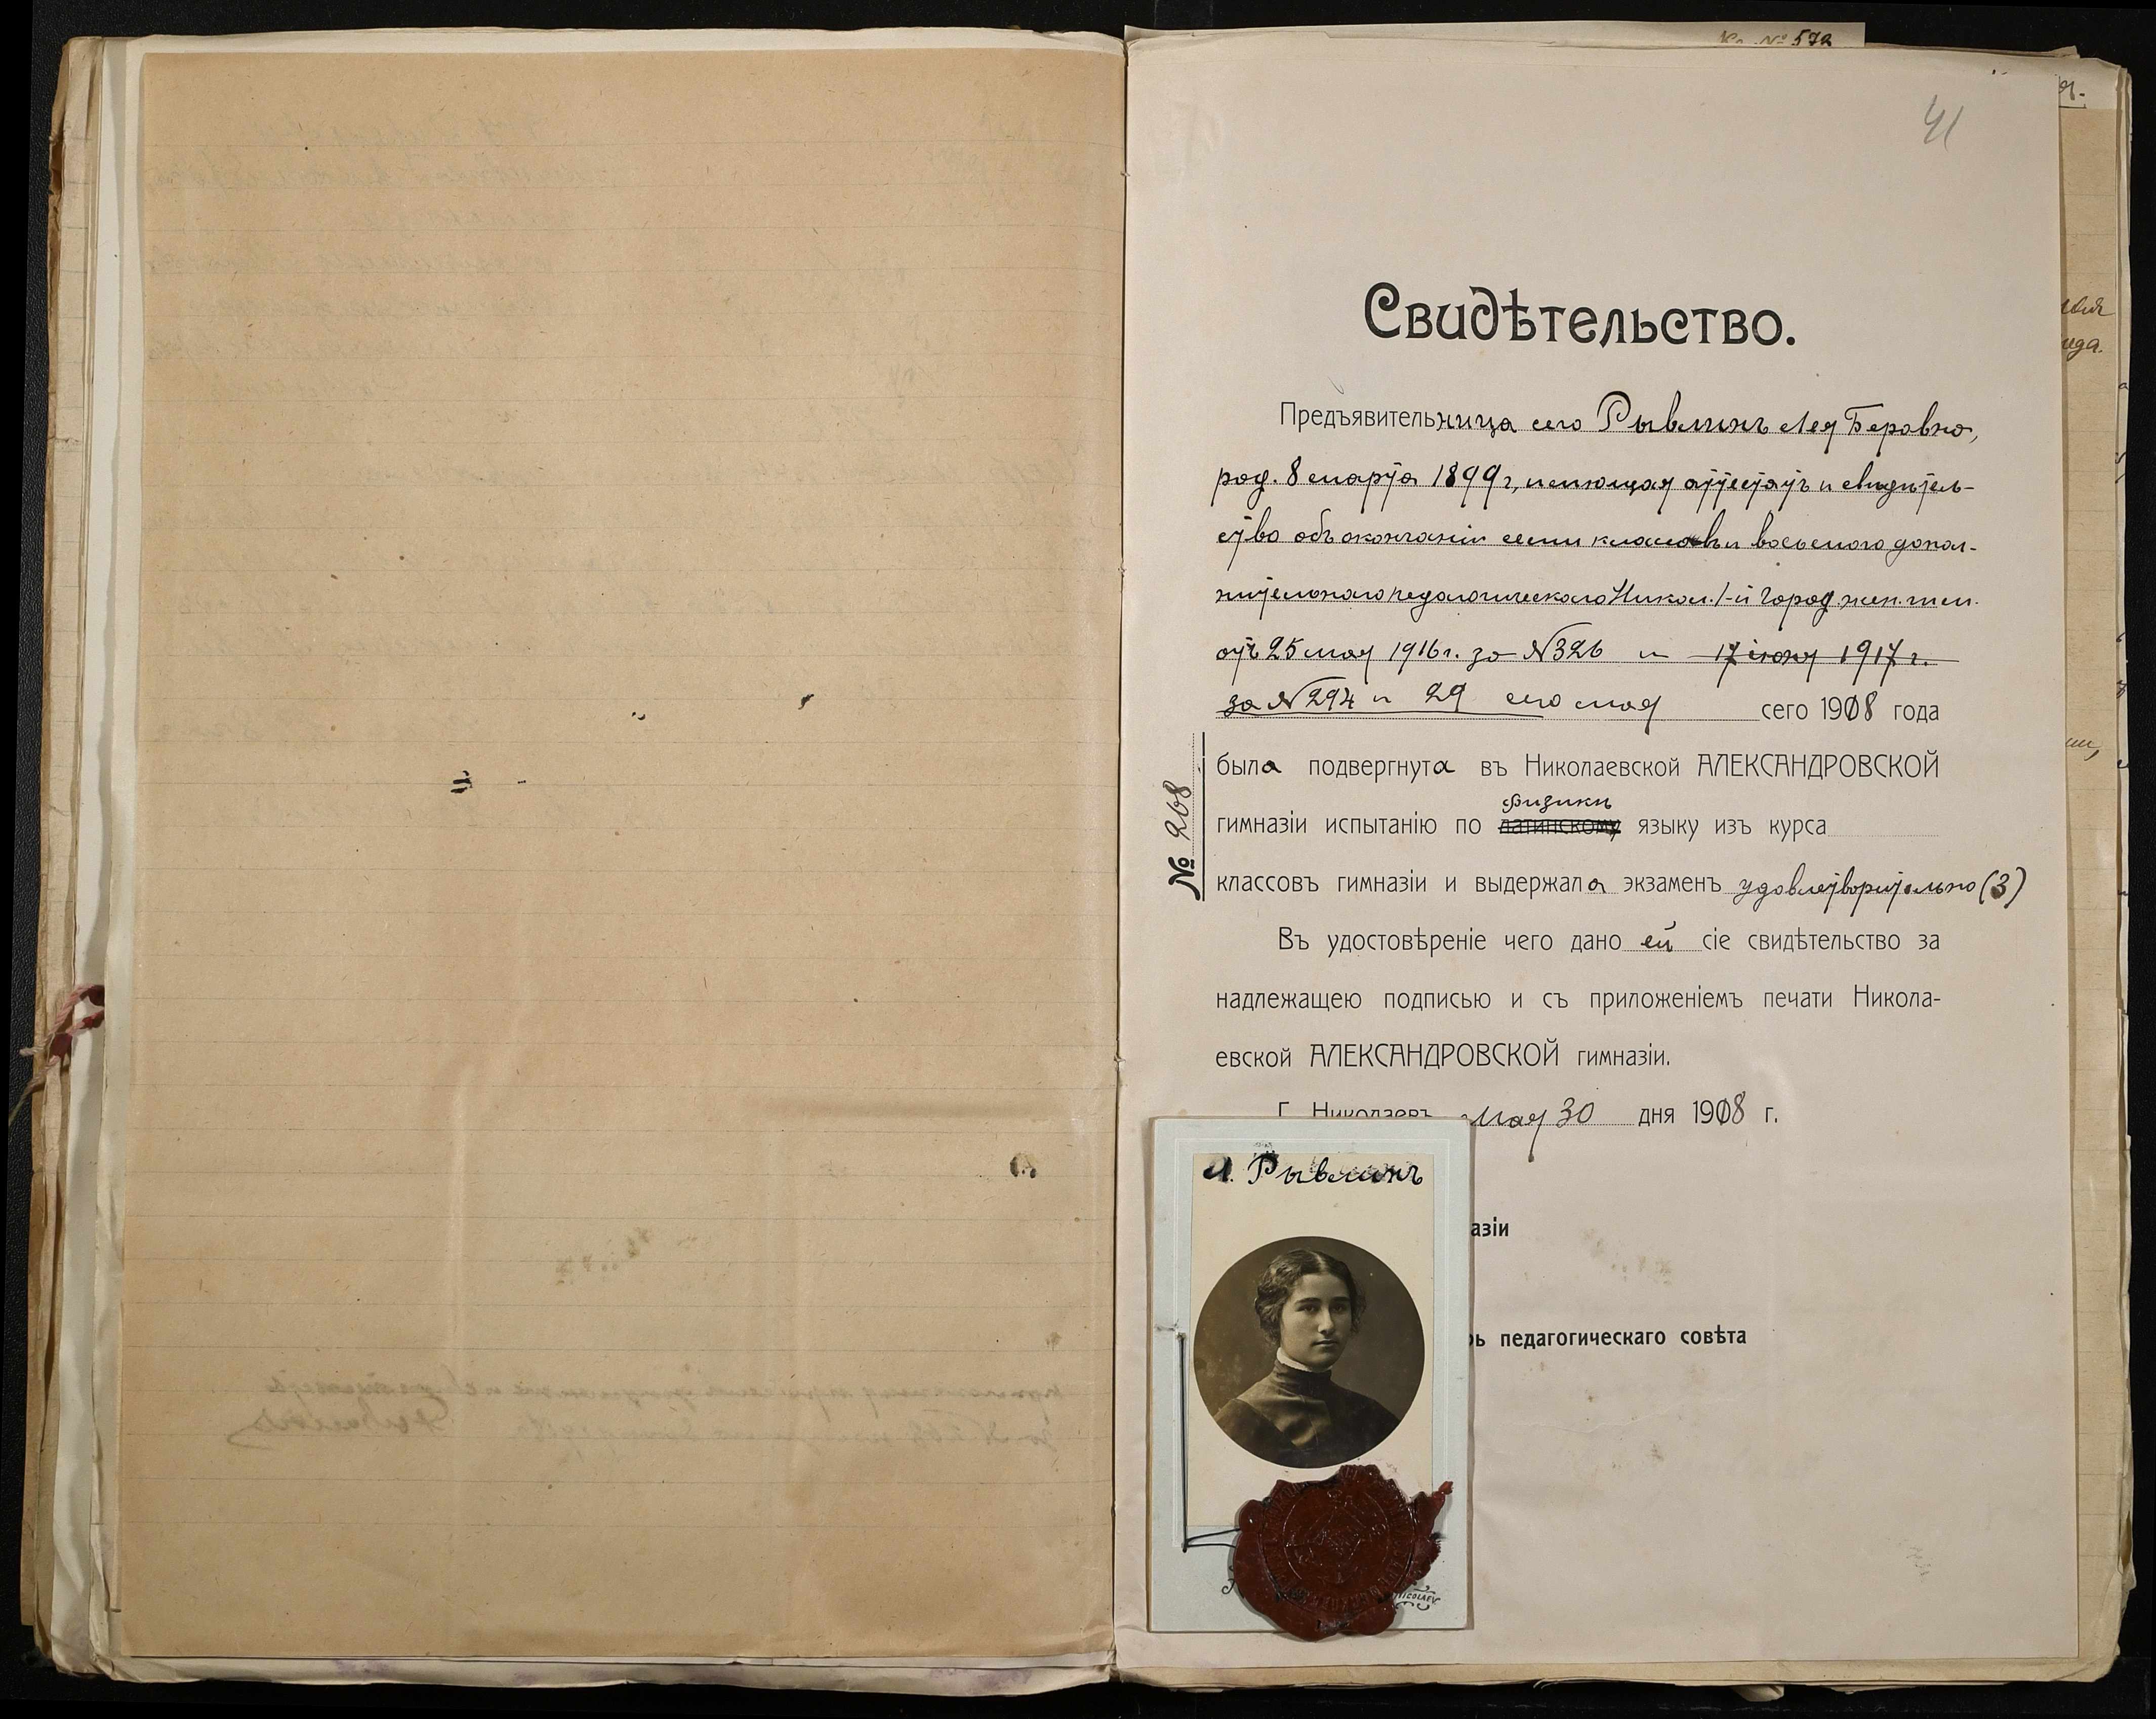 К. № 572
41
Свидѣтельство.
Предъявительница сего Рывлинъ Лея Беровна,
род. 8 марта 1899 г., имеющая аттестатъ и свидѣтель-
ство объ окончаніи семи классовъ и восьмого допол-
нительнаго педагогическаго Никол. 1-й город. жен. гим.
отъ 25 мая 1916 г. за №326 и 17 іюня 1917 г.
за №294 и 29 сего мая сего 1918 года
была подвергнута въ Николаевской АЛЕКСАНДРОВСКОЙ
физики
гимназіи испытанію по латинскому языку изъ курса
классовъ гимназіи и выдержала экзаменъ удовлетворительно (3)
Въ удостовѣреніе чего дано ей сіе свидѣтельство за
надлежащею подписью и съ приложеніемъ печати Никола-
евской АЛЕКСАНДРОВСКОЙ гимназіи.
Г. Николаевъ, Мая 30 дня 1918 г.
№ 268
Л. Рывлинъ
азіи
рь педагогическаго совѣта
NICOLAEV.